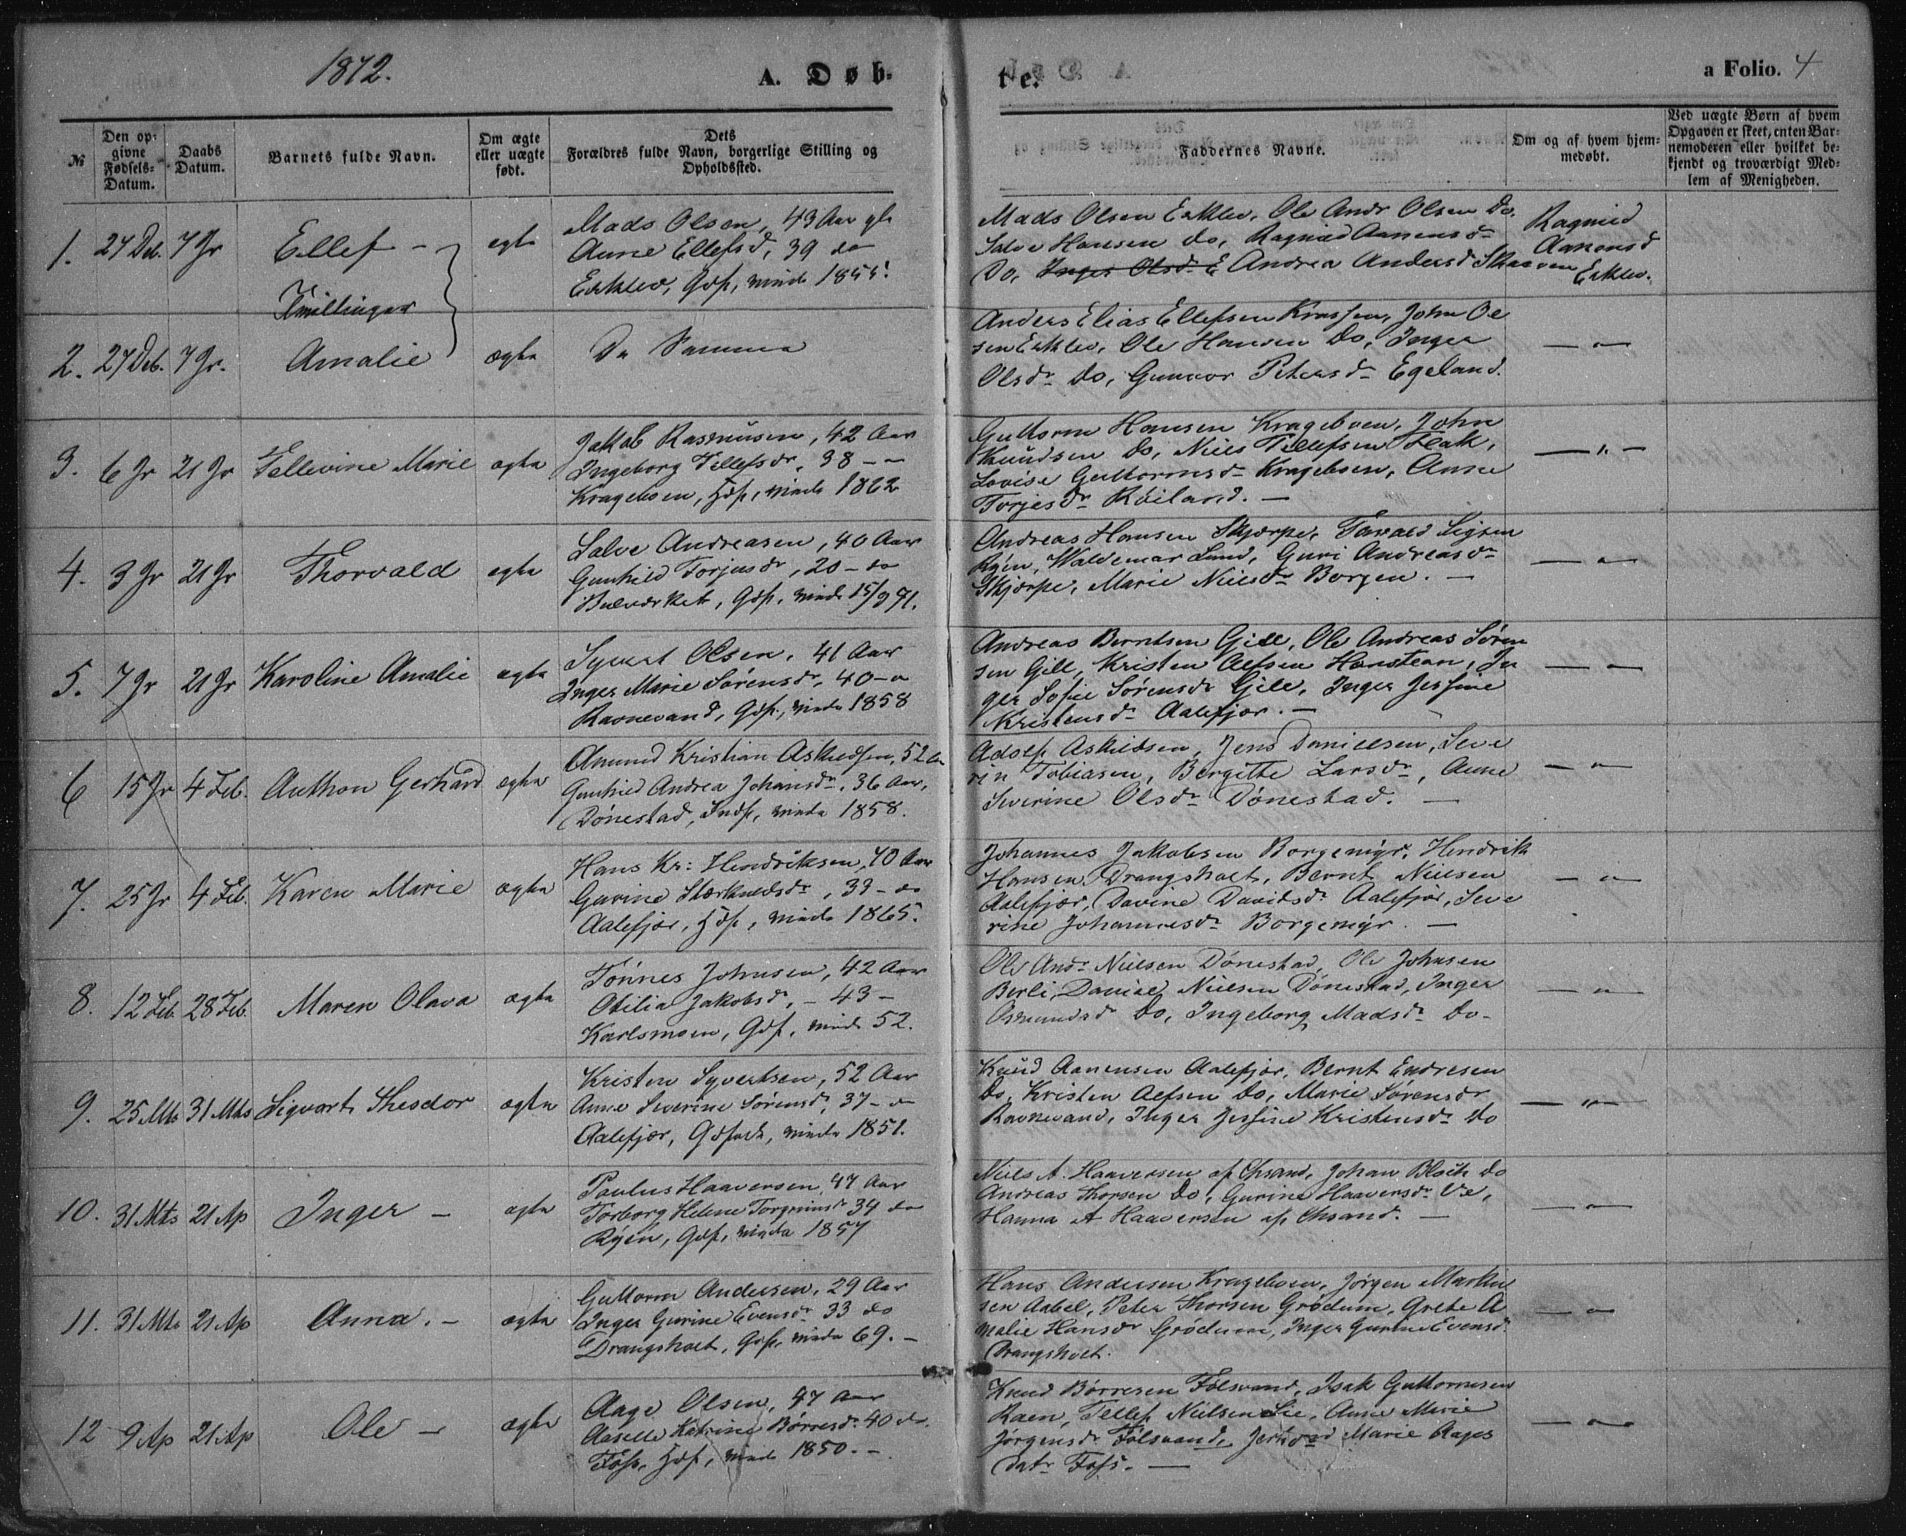 1872.
A. Døb-
te.
a Folio. 4
№
Den op-
givne
Fødsels-
Datum.
Daabs
Datum.
Barnets fulde Navn.
Om ægte
eller uægte
født.
Dets
Forældres fulde Navn, borgerlige Stilling og
Opholdssted.
Faddernes Navne.
Om og af hvem hjem-
medøbt.
Ved uægte Børn af hvem
Opgaven er skeet, enten Bar-
nemoderen eller hvilket be-
kjendt og troværdigt Med-
lem af Menigheden.
1. 27 Deb. 7 Jr Ellef - egte
Mads Olsen, 43 Aar gl
Anne Ellefsd, 39 do
Eeklev, Gdf, viede 1855
Mads Olsen Eeklev, Ole Andr Olsen Do,
Salve Hansen do, Ragnild Aanensdr
Do, Inger Olsdr E Andrea Andersd Skaaven
Ragnild
Aanensd
Eeklev.
Tvillinger
2. 27 Deb. 7 Jr. Amalie ægte
De Samme
Anders Elias Ellefsen, John Ol
sen Eeklev, Ole Hansen Do, Inger
Olsdr Do, Gunvor Petersdr Egeland.
— " —
3. 6 Jr 21 Jr Tellevine Marie ægte
Jakob Rasmusen, 42 Aar
Ingeborg Tellefsdr, 38 - -
Krageboen, Hdf, viede 1862
Guttorm Hansen Krageboen, John
Knudsen Do, Niels Tellefsen Flak,
Lovise Guttormsdr Krageboen, Anne
Torjesdr Røiland. —
— " —
4. 3 Jr 21 Jr Thorvald egte
Salve Andreasen, 40 Aar
Gunhild Torjusdr, 20 - do
Gdf, viede 15/9 71.
Andreas Hansen Skjørpe, Tarald
Røen, Waldemar Lund, Guri Andreasdr
Skjørpe, Marie Nielsdr Borgen. —
— " —
5. 7 Jr 21 Jr Karoline Amalie ægte
Syvert Olsen, 41 Aar
Inger Marie Sørensdr, 40 - "
Ravnevand, Gdf, viede 1858
Andreas Berntsen Gill, Ole Andreas Søren
sen Gill, Kristen Alfsen Haastean, In
ger Sofie Sørensdr Gill, Inger Jessine
Kristensdr Aalefjær. —
— " —
6 15 Jr 4 Feb. Anthon Gerhard ægte
Amund Kristian Askildsen, 52 Aar
Gunhild Andrea Johansdr, 36 Aar,
Dønestad, Indf, viede 1858.
Adolf Askildsen, Jens Danielsen, Seve
rin Tobiasen, Bergitte Larsdr, Anne
Severine Olsdr Dønestad. —
— " —
7. 25 Jr 4 Feb. Karen Marie ægte
Hans Kr: Hendriksen, 40 Aar
Gurine Stærkuldsdr, 33 - do
Aalefjær, Hdf, viede 1865.
Johannes Jakobsen Borgemyr, Hendrik
Hansen Drangsholt, Bernt Nielsen
Aalefjær, Davine Davidsdr Aalefjær, Seve
rine Johannesdr Borgemyr. —
— " —
8. 12 Feb. 28 Feb. Maren Olava ægte
Tønnes Johnsen, 42 Aar
Otilia Jakobsd, - 43 -
Karlsmoen, Gdf, viede 52.
Ole Andr Nielsen Dønestad, Ole Johnsen
Berli, Daniel Nielsen Dønestad, Inger
Osmundsd Do, Ingeborg Madsdr Do-
— " —
9. 25 Mts 31 Mts Sigvart Theodor ægte
Kristen Syvertsen, 52 Aar
Anne Severine Sørensdr, 37 - do
Aalefjær, viede 1851.
Knud Aanensen Aalefjær, Bernt Endresen
Do, Kristen Alfsen Do, Marie Sørensdr
Ravnevand, Inger Jessine Kristensdr Do
— " —
10. 31 Mts 21 Ap Inger — ægte
Paulus Haaversen, 47 Aar
Torborg Helene Torgrimsdr 34 do
Røen, Gdf, viede 1857
Niels A. Haaversen af Chrsand, Johan Do
Andreas Thorsen Do, Gurine Haaversdr Ve,
Hanna A Haaversen af Chrsand. —
— " —
11. 31 Mts 21 Ap Anna. — ægte
Guttorm Andersen, 29 Aar
Inger Gurine Evensdr 33 do
Drangsholt, Gdf, viede 69. —
Hans Andersen Krageboen, Jørgen Markus
sen Aabel, Peter Thorsen Grødum, Grete A
malie Hansdr Grødum, Inger Gurine Evensd.
Drangsholt.
— " —
12 9 Ap 21 Ap Ole — ægte
Aage Olsen, 47 Aar
Aaselle Katrine Børresdr 40 do.
Foss, Hdf, viede 1850. —
Knud Børresen Følsvand, Isak Guttormsen
Raen, Tellef Nielsen Lie, Anne Marie
Jørgensdr Følsvand, Marie Aages
datr Foss. —
— " —